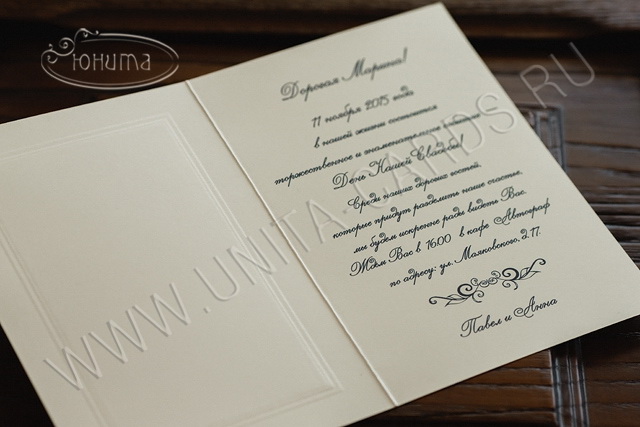 Юнита
Дорогая Марина!
11 ноября 2015 года
в нашей жизни состоится
торжественное и знаменательное событие
День Нашей Свадьбы!
Среди наших дорогих гостей,
которые придут разделить наше счастье,
мы будем искренне рады видеть Вас.
Ждем Вас в 16.00 в кафе Автограф
по адресу: ул. Маяковского, д.17.
Павел и Анна
WWW.UNITA-CARDS.RU